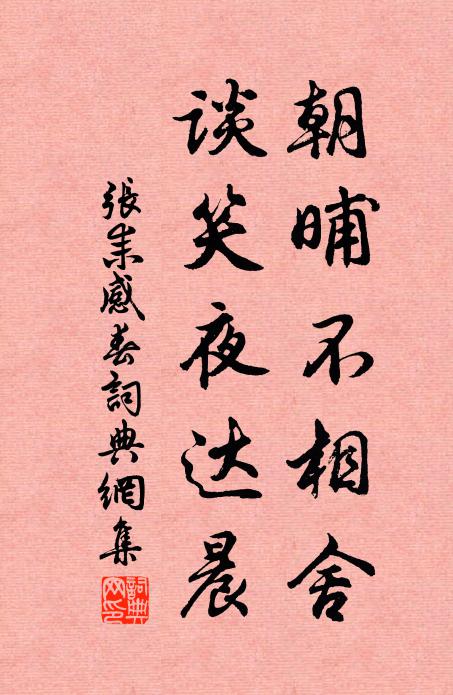 朝晡不相舍
谈笑夜达晨
張耒感春詞典網集
詞典网印